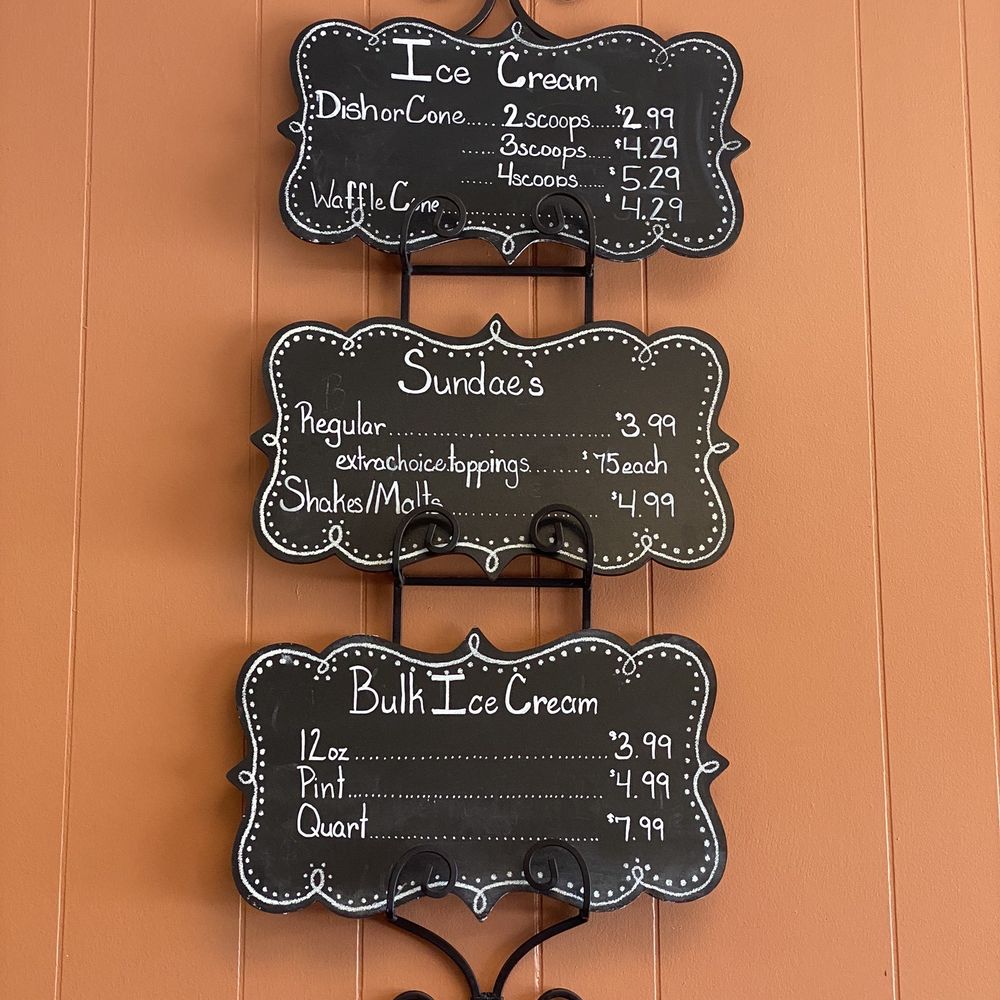 Ice Cream
Dish or Cone...... 2 scoops...... $2.99
...... 3 scoops..... $4.29
...... 4 scoops..... $5.29
Waffle Cone.................... $4.29
Sundae's
Regular.............................. $3.99
extra choice toppings........ $.75 each
Shakes/Malts.................... $4.99
Bulk Ice Cream
12oz.................................. $3.99
Pint.................................... $4.99
Quart................................ $7.99